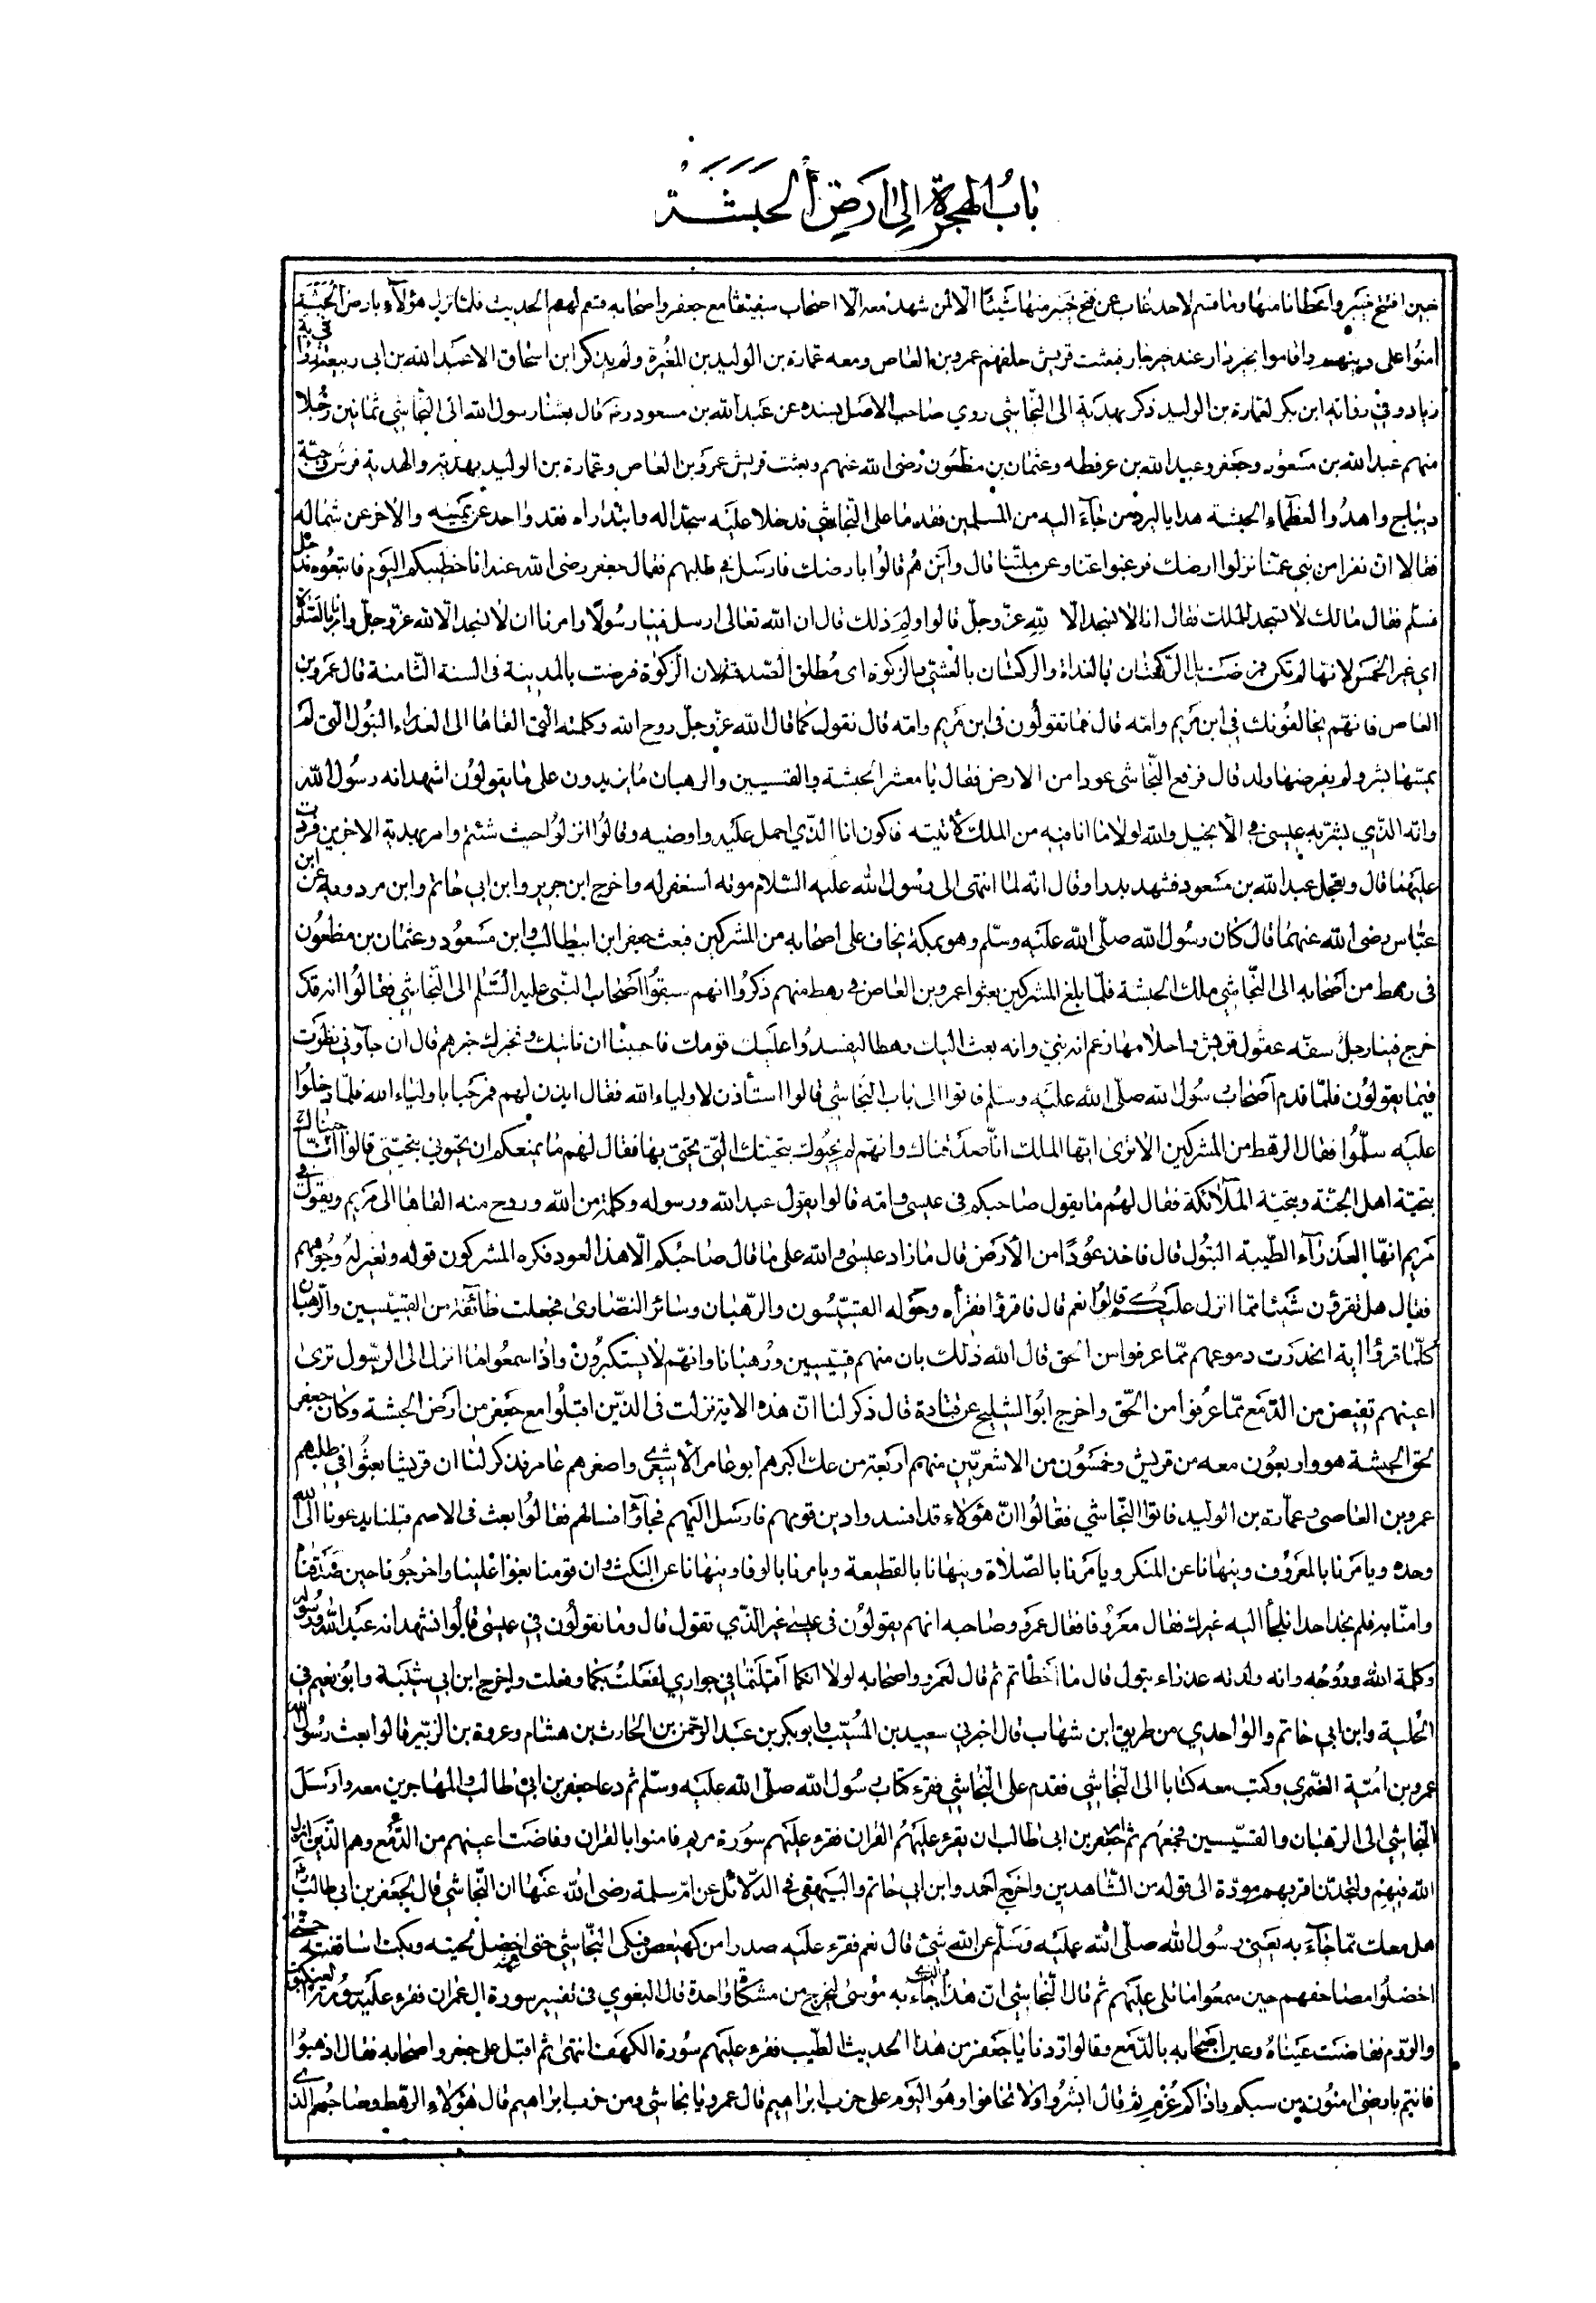 باب الهجرة الى ارض الحبشة
حين افتتح خيبر واعطانا منها وما قسم لاحد غاب عن فتح خيبر منها شيئا الا لمن شهد معه الا اصحاب سفينتنا مع جعفر واصحابه قسم لهم الحديث فلما نزل هؤلاء بارض الحبشة
امنوا على دينهم واقاموا بخير دار عند خير جار فبعثت قريش خلفهم عمرو بن العاص ومعه عمارة بن الوليد بن المغيرة ولم يذكر ابن اسحاق الا عبد الله بن ابى ربيعة وفي رواية
زياد وفي رواية ابن بكر لعمارة بن الوليد ذكر بهدية الى النجاشي روي صاحب الاصل بسنده عن عبد الله بن مسعود رضه قال بعثنا رسول الله الى النجاشي ثمانين رجلا
منهم عبد الله بن مسعود وجعفر وعبيد الله بن عرفطه وعثمان بن مظعون رضى الله عنهم وبعثت قريش عمرو بن العاص وعمارة بن الوليد بهدية والهدية فرس وجبة
ديباج واهدوا لعظماء الحبشة هدايا ليرد من جاء اليه من المسلمين فقدما على النجاشي فدخلا عليه سجدا له وابتدراه فقعد واحد عن يمينه والاخر عن شماله
فقالا ان نفرا من بنى عمنا نزلوا ارضك فرغبوا عنا وعن ملتنا قال واين هم قالوا بارضك فارسل في طلبهم فقال جعفر رضى الله عنه انا خطيبكم اليوم فاتبعوه فدخل
فسلم فقال مالك لا تسجد للملك فقال انا لا نسجد الا لله عز وجل قالوا ولم ذلك قال ان الله تعالى ارسل فينا رسولا وامرنا ان لا نسجد الا لله عز وجل وامرنا بالصلوة
اي غير الخمس لانها لم تكن فرضت بل الركعتان بالغداة والركعتان بالعشي والزكوة اى مطلق الصدقة لان الزكوة فرضت بالمدينة فى السنة الثامنة قال عمرو بن
العاص فانهم يخالفونك في ابن مريم وامه قال فما تقولون فى ابن مريم وامه قال نقول كما قال الله عز وجل روح الله وكلمته التى القاها الى العذراء البتول التى لم
يمسها بشر ولم يفرضها ولد قال فرفع النجاشى عودا من الارض فقال يا معشر الحبشة والقسيسين والرهبان ما يزيدون على ما يقولون اشهد انه رسول الله
وانه الذي بشر به عيسى في الانجيل والله لولا ما انا فيه من الملك لاتيته فاكون انا الذي احمل عليه واوضيه وقالوا انزلوا حيث شئتم وامر بهدية الاخرين فردت
عليهما قال وتعجل عبد الله بن مسعود فشهد بدرا وقال انه لما انتهى الى رسول الله عليه السلام موته استغفر له واخرج ابن جرير وابن ابى حاتم وابن مردويه عن ابن
عباس رضى الله عنهما قال كان رسول الله صلى الله عليه وسلم وهو بمكة يخاف على اصحابه من المشركين فبعث جعفر ابن ابيطالب وابن مسعود وعثمان بن مظعون
فى رهط من اصحابه الى النجاشي ملك الحبشة فلما بلغ المشركين بعثوا عمرو بن العاص في رهط منهم ذكروا انهم سبقوا اصحاب النبى عليه السلم الى النجاشي فقالوا انه قد
خرج فينا رجل سفه عقول قريش واحلامها زعم انه نبي وانه بعث اليك رهطا ليفسدوا عليك قومك فاحببنا ان ناتيك ونخبرك خبرهم قال ان جاؤني نظرت
فيما يقولون فلما قدم اصحاب رسول الله صلى الله عليه وسلم فاتوا الى باب النجاشي قالوا استأذن لاولياء الله فقال ايذن لهم فمرحبا باولياء الله فلما دخلوا
عليه سلموا فقال الرهط من المشركين الا ترى ايها الملك انا صدقناك وانهم لم يحيوك بتحيتك التى تحيى بها فقال لهم ما يمنعكم ان تحيوني بتحيتى قالوا انا حييناك
بتحية اهل الجنة وبتحية الملائكة فقال لهم ما يقول صاحبكم في عيسى وامه قالوا يقول عبد الله ورسوله وكلمة من الله وروح منه القاها الى مريم ويقول في
مريم انها العذراء الطيبة البتول قال فاخذ عودا من الارض قال ما زاد عيسى والله على ما قال صاحبكم الا هذا العود فكره المشركون قوله وتغير له وجوههم
فقال هل تقرؤن شيئا مما انزل عليكم قالوا نعم قال فاقرؤا فقرأه وحوله القسيسون والرهبان وسائر النصارى فجعلت طائفة من القسيسين والرهبان
كلما قرؤا اية انحدرت دموعهم مما عرفوا من الحق قال الله ذلك بان منهم قسيسين ورهبانا وانهم لا يستكبرون واذا سمعوا ما انزل الى الرسول ترى
اعينهم تفيض من الدمع مما عرفوا من الحق واخرج ابو الشيخ عن قتادة قال ذكر لنا ان هذه الاية نزلت فى الذين اقبلوا مع جعفر من ارض الحبشة وكان جعفر
لحق الحبشة هو واربعون معه من قريش وخمسون من الاشعريين منهم اربعة من عك اكبرهم ابو عامر الاشعرى واصغرهم عامر فذكر لنا ان قريشا بعثوا في طلبهم
عمرو بن العاصى وعمارة بن الوليد فاتوا النجاشي فقالوا ان هؤلاء قد افسدوا دين قومهم فارسل اليهم فجاؤا فسالهم فقالوا بعث فى الامم قبلنا يدعونا الى الله
وحده ويامرنا بالمعروف وينهانا عن المنكر ويامرنا بالصلاة وينهانا بالقطيعة ويامرنا بالوفا وينهانا عن النكث وان قومنا بغوا علينا واخرجونا حين صدقناه
وامنا به فلم نجد احدا نلجأ اليه غيرك فقال معروفا فقال عمرو وصاحبه انهم يقولون فى عيسى غير الذي تقول قال وما تقولون في عيسى قالوا نشهد انه عبد الله ورسوله
وكلمة الله وروحه وانه ولدته عذراء بتول قال ما اخطأتم ثم قال لعمرو واصحابه لولا انكما اقبلتما في جواري لفعلت بكما وفعلت واخرج ابن ابي شيبة وابو نعيم في
الحلية وابن ابي حاتم والواحدي من طريق ابن شهاب قال اخبرني سعيد بن المسيب وابو بكر بن عبد الرحمن بن الحارث بن هشام وعروة بن الزبير قالوا بعث رسول الله
عمرو بن امية الضمري وكتب معه كتابا الى النجاشي فقدم على النجاشي فقرء كتاب رسول الله صلى الله عليه وسلم ثم دعا جعفر بن ابى طالب والمهاجرين معه وارسل
النجاشي الى الرهبان والقسيسين فجمعهم ثم امر جعفر بن ابى طالب ان يقرء عليهم القران فقرء عليهم سورة مريم فامنوا بالقران وفاضت اعينهم من الدمع وهم الذين انزل
الله فيهم ولتجدن اقربهم مودة الى قوله من الشاهدين واخرج احمد وابن ابي حاتم والبيهقي في الدلائل عن ام سلمة رضى الله عنها ان النجاشي قال لجعفر بن ابى طالب
هل معك مما جاء به يعنى رسول الله صلى الله عليه وسلم عن الله شئ قال نعم فقرء عليه صدرا من كهيعص فبكى النجاشي حتى اخضل لحيته وبكت اساقفته حتى
اخضلوا مصاحفهم حين سمعوا ما تلى عليهم ثم قال النجاشي ان هذا والذى جاء به موسى ليخرج من مشكاة واحدة قال البغوي فى تفسير سورة ال عمران فقرء عليه سورة العنكبوت
والروم ففاضت عيناه وعين اصحابه بالدمع وقالوا زدنا يا جعفر من هذا الحديث الطيب فقرء عليهم سورة الكهف انتهى ثم اقبل على جعفر واصحابه فقال اذهبوا
فانتم بارضى امنون من سبكم واذاكم غرم ثم قال ابشروا ولا تخافوا وهو اليوم على حزب ابراهيم قال عمرو يا نجاشى ومن حزب ابراهيم قال هؤلاء الرهط وصاحبهم الذى